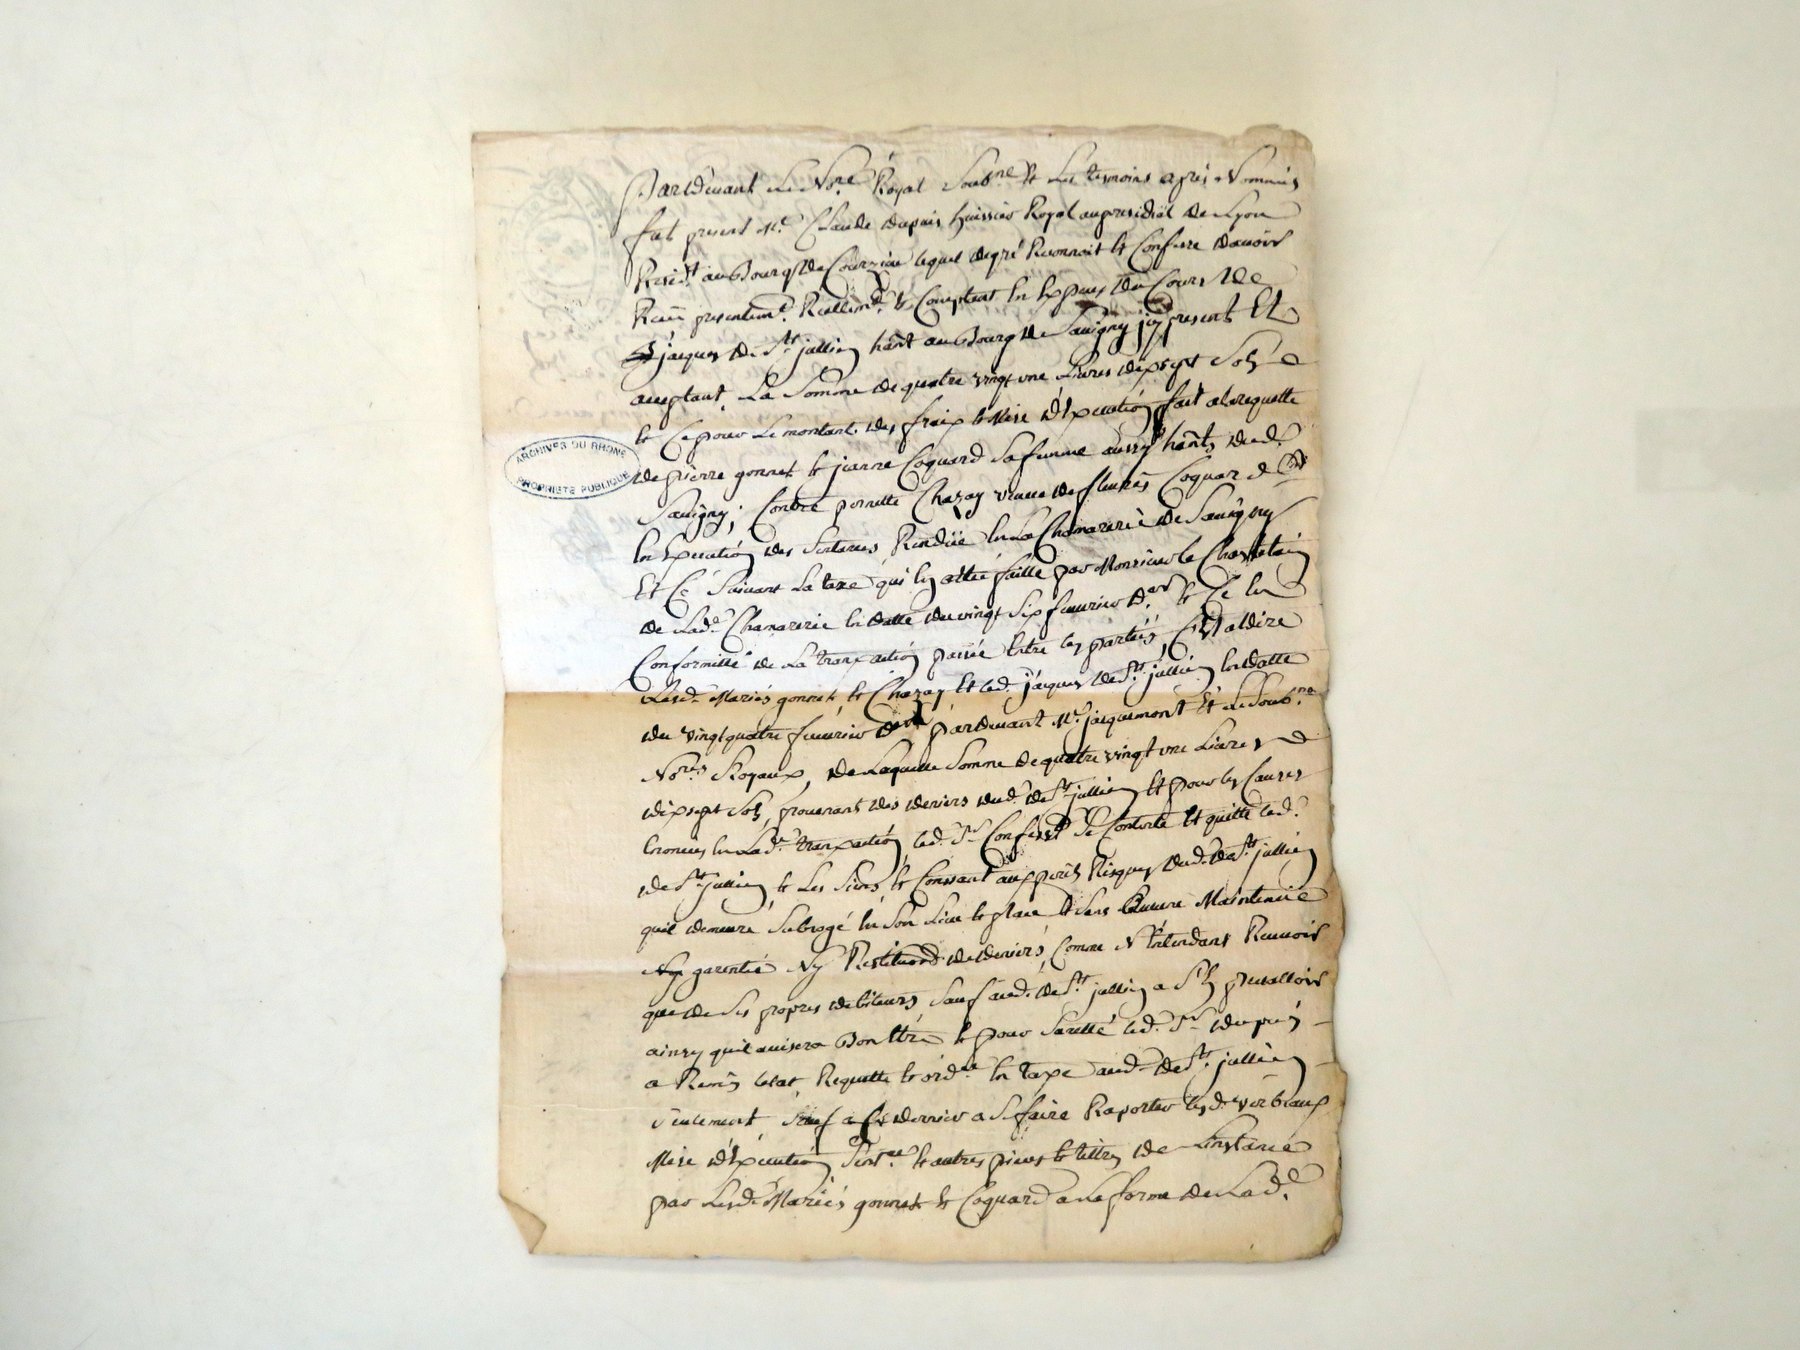 Pardevant Le No.re Royal Soub.ne & Les temoins apres Nommés
fut present M.e Claude dupuis huissier Royal au presidial de Lyon
Resid.t au Bourg de Courzieu lequel de gré Reconnoit & Confesse davoir
Receu presentem.t Reellem.t & Comptant En Especes du Cours de
jacques de St. jullien hant au Bourg de Savigny jcy present Et
aceptant, La Somme de quatre vingt une Livres dixsept Sols
& Ce pour Le montant des fraix & Mise d'Execution fait alarequette
de pierre gonnet & jeanne Coquard Sa femme aussy hants dud.
Savigny, Contre pernette Chazay veuve de Coquard
En Execution des Sentences Rendüe En La Chamarerie de Savigny
Et Ce Suivant La taxe qui En a été faitte par Monsieur le Chastelain
de Lad.e Chamarerie En datte du vingt Six fevrier d.er & Ce En
Conformitté de La transaction passée Entre les parties, C'Est adire
Lesd. Mariés gonnet, & Chazay Et led. jacques de St. jullien En datte
du vingt quatre fevrier d.er pardevant M.e jacquemont Et Le Soub.ne
No.res Royaux, de Laquelle Somme de quatre vingt une Livres
dixsept Sols, provenant des deniers dud. de St. jullien Et pour les Causes
Enoncées En Lad.e transaction, led. Sr. Confesse Se Contente Et quitte led.
de St. jullien, & Les Siens & Consent aux perils Risques dud. de St. jullien
quil demeure Subrogé En Son Lieu & place & Sans Maintenüe
Ny garentie Ny de deniers, Comme N'Entendant Recevoir
que de Ses propres debiteurs Sauf aud. de St. jullien a S'En prevalloir
ainsy quil avisera Bon Etre & pour Sureté led. Sr. dupuis
a Remis Letat Requette & ord.ce En taxe aud. de St. jullien
Seulement Sauf a Ce dernier a Se faire Raporter lesd. verbeaux
Mise d'Execution Sent.ce & autres pieces & tittres de Linstance
par Lesd. Mariés gonnet & Coquard a La forme de Lad.e
ARCHIVES DU RHONE
PROPRIETE PUBLIQUE